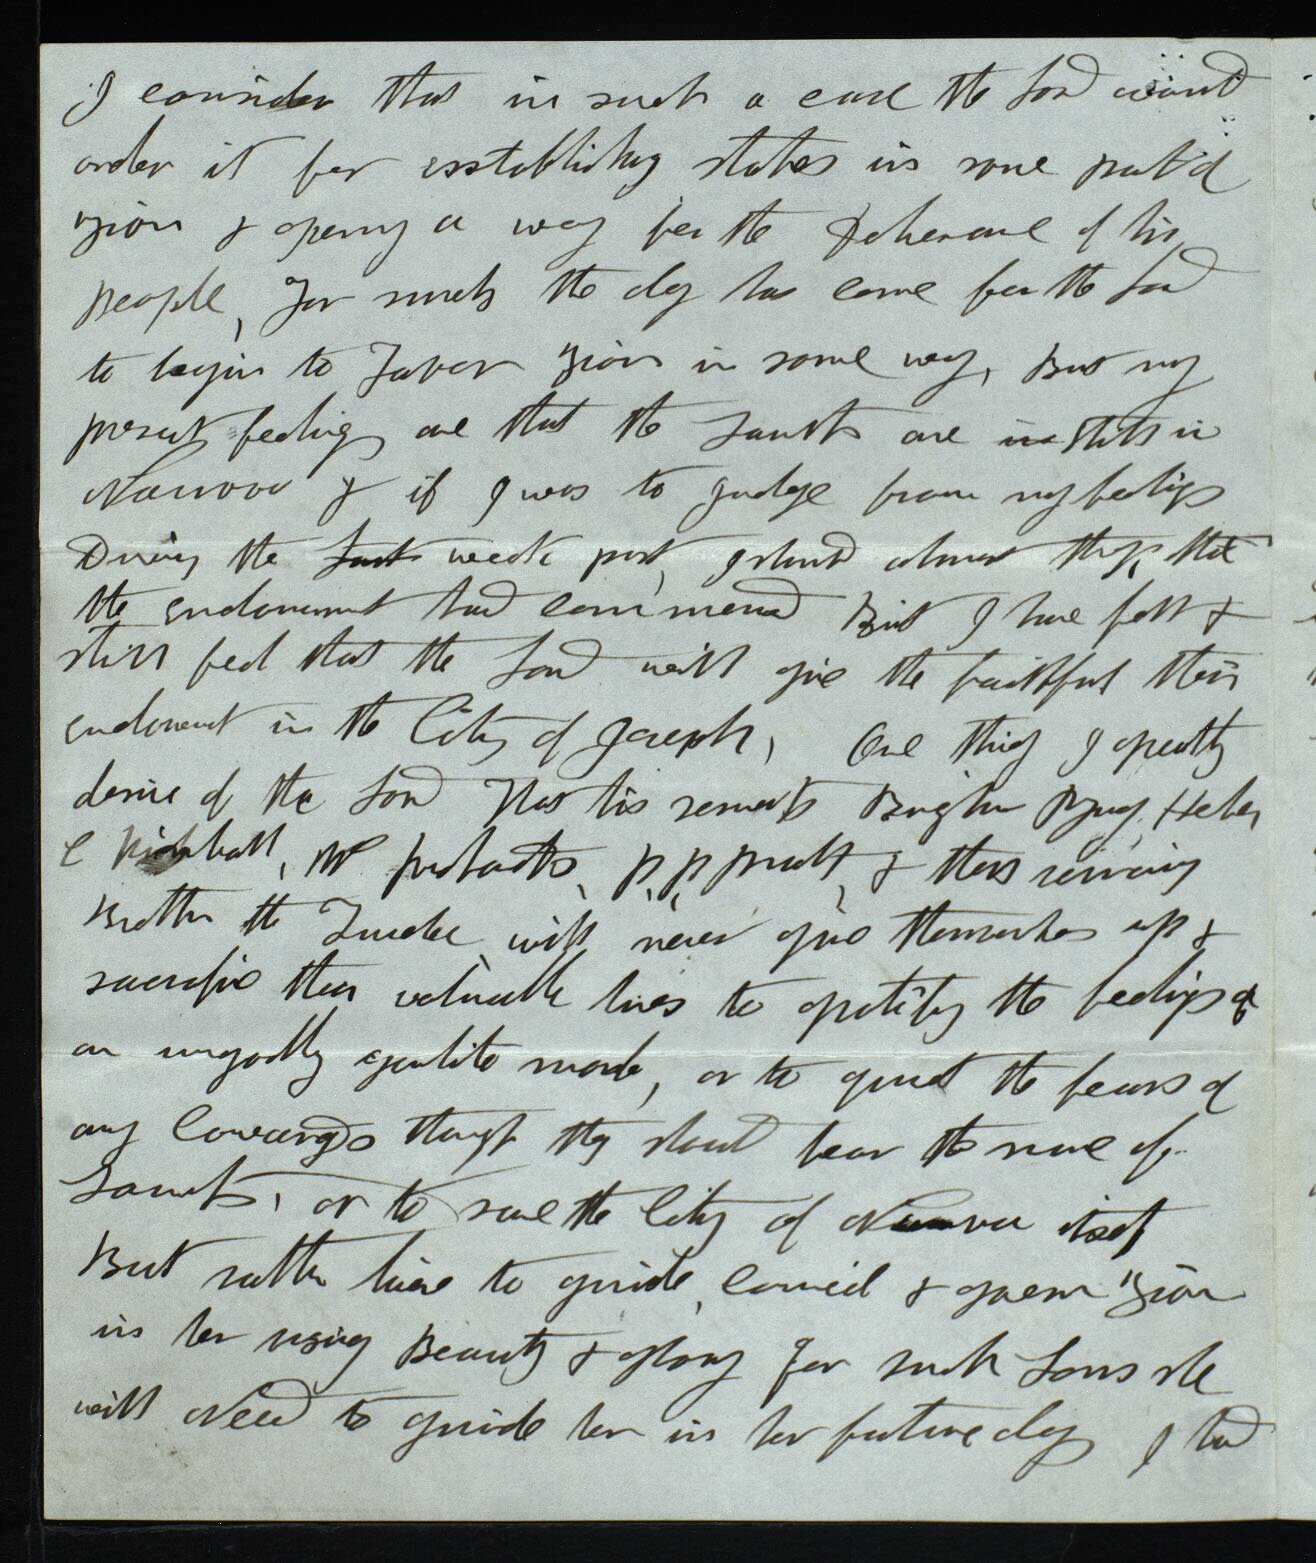 I consider that in such a case the Lord would
order it for esstablishing states in some part of
Zion & opening a way for the deliverance of his
people, For surely the day has come for the Lord
to begin to Favor Zion in some way, But my
present feelings are that the Saints are in states in
Nauvoo & if I was to judge from my feelings
During the Last week past, I should almost think that
the endowment had commenced But I have felt &
still feel that the Lord will give the faithful their
endowment in the City of Joseph, One thing I greatly
desire of the Lord That his servants Brigham Young, Heber
C Kimball, W Richards, P. P. Pratt, & those surviving
Brethren the Twelve, will never give themselves up &
sacrafice their valuable lives to gratify the feelings of
an ungodly gentile mob, or to quiet the fears of
any Cowards though they should bear the name of
Saints, or to save the City of Nauvoo itself
But rather live to guide, Council & govern Zion
in her rising Beauty & glory for such Sons she
will Need to guide her in her future day I had